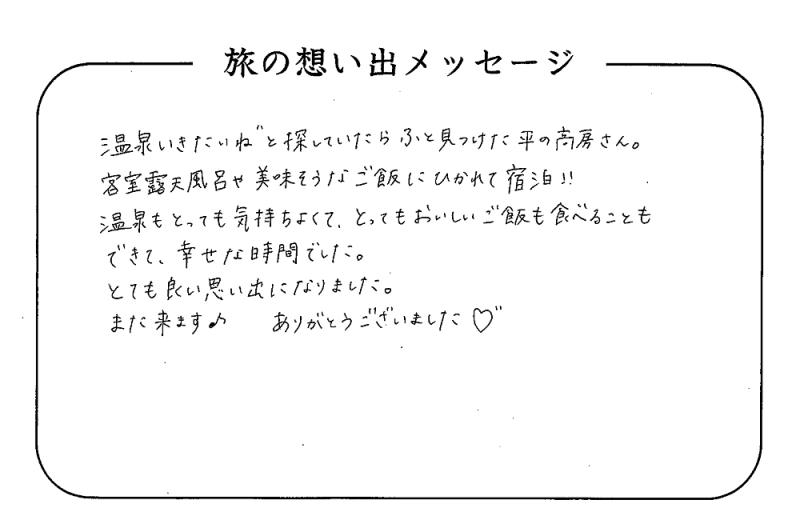 旅の想い出メッセージ
温泉いきたいね"と探していたらふと見つけた平の高房さん。
客室露天風呂や美味そうなご飯にひかれて宿泊!!
温泉もとっても気持ちよくて、とってもおいしいご飯も食べることも
できて、幸せな時間でした。
とても良い思い出になりました。
また来ます♪ ありがとうございました♡"